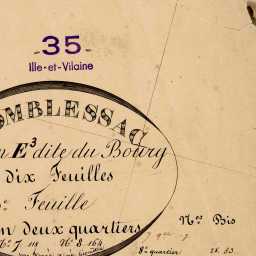 -35-
Ille-et-Vilaine
OMBLESSAC
n E³ dite du Bourg
dix Feuilles
Feuille
n deux quartiers
Nos Bis
No 7. 118 No 8. 164
8e quartier